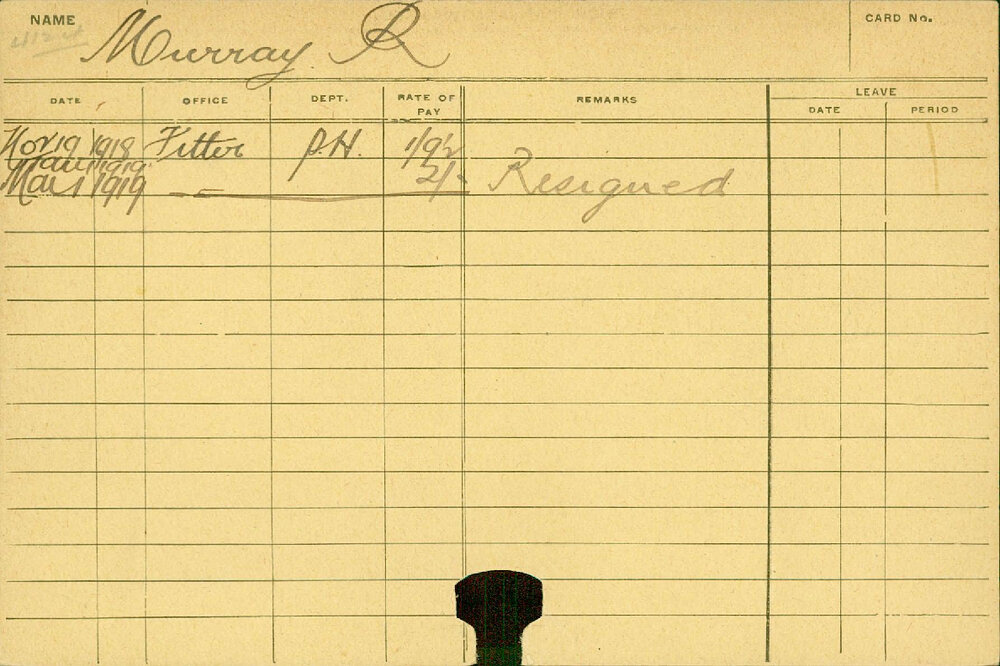 NAME Murray R CARD No.
DATE OFFICE DEPT. RATE OF PAY REMARKS LEAVE
DATE PERIOD
Nov 19 1918 Fitter P.H. 1/9½
Jan 1 1919 2/-
Mar 1 1919 Resigned